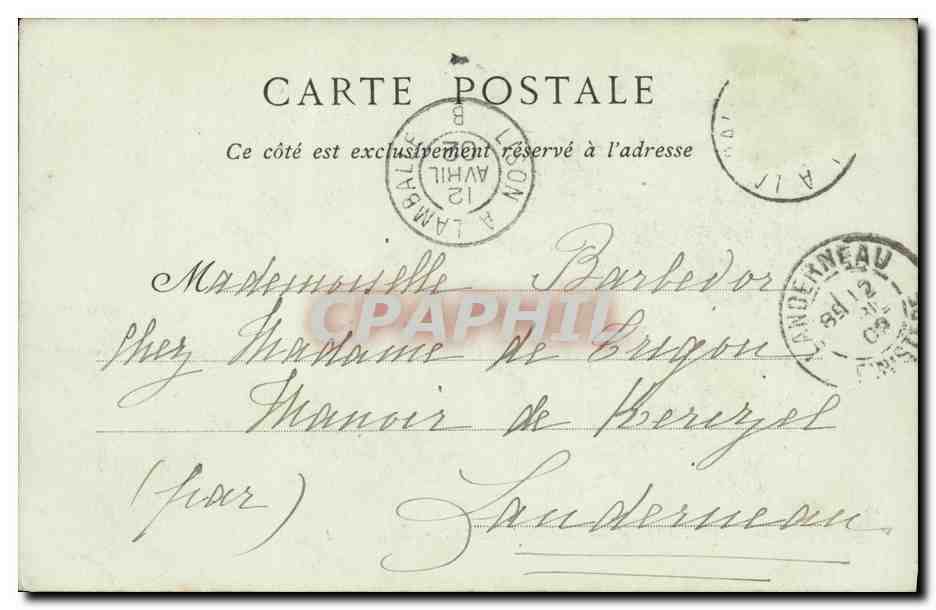 CARTE POSTALE
Ce côté est exclusivement réservé à l'adresse
LISON A LAMBALLE
8
12
AVRIL
02
LANDERNEAU
12
FINISTERE
Mademoiselle Barbedor
Chez Madame de Trigon
Manoir de Kerizel
(par) Landerneau
CPAPHIL